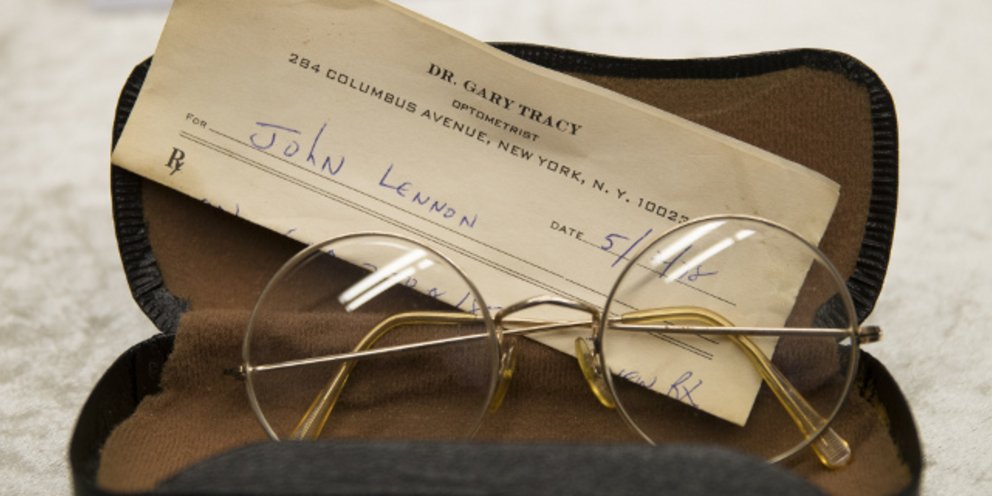 DR. GARY TRACY
OPTOMETRIST
284 COLUMBUS AVENUE, NEW YORK, N. Y. 10023
FOR John Lennon
DATE
Rx
New Rx